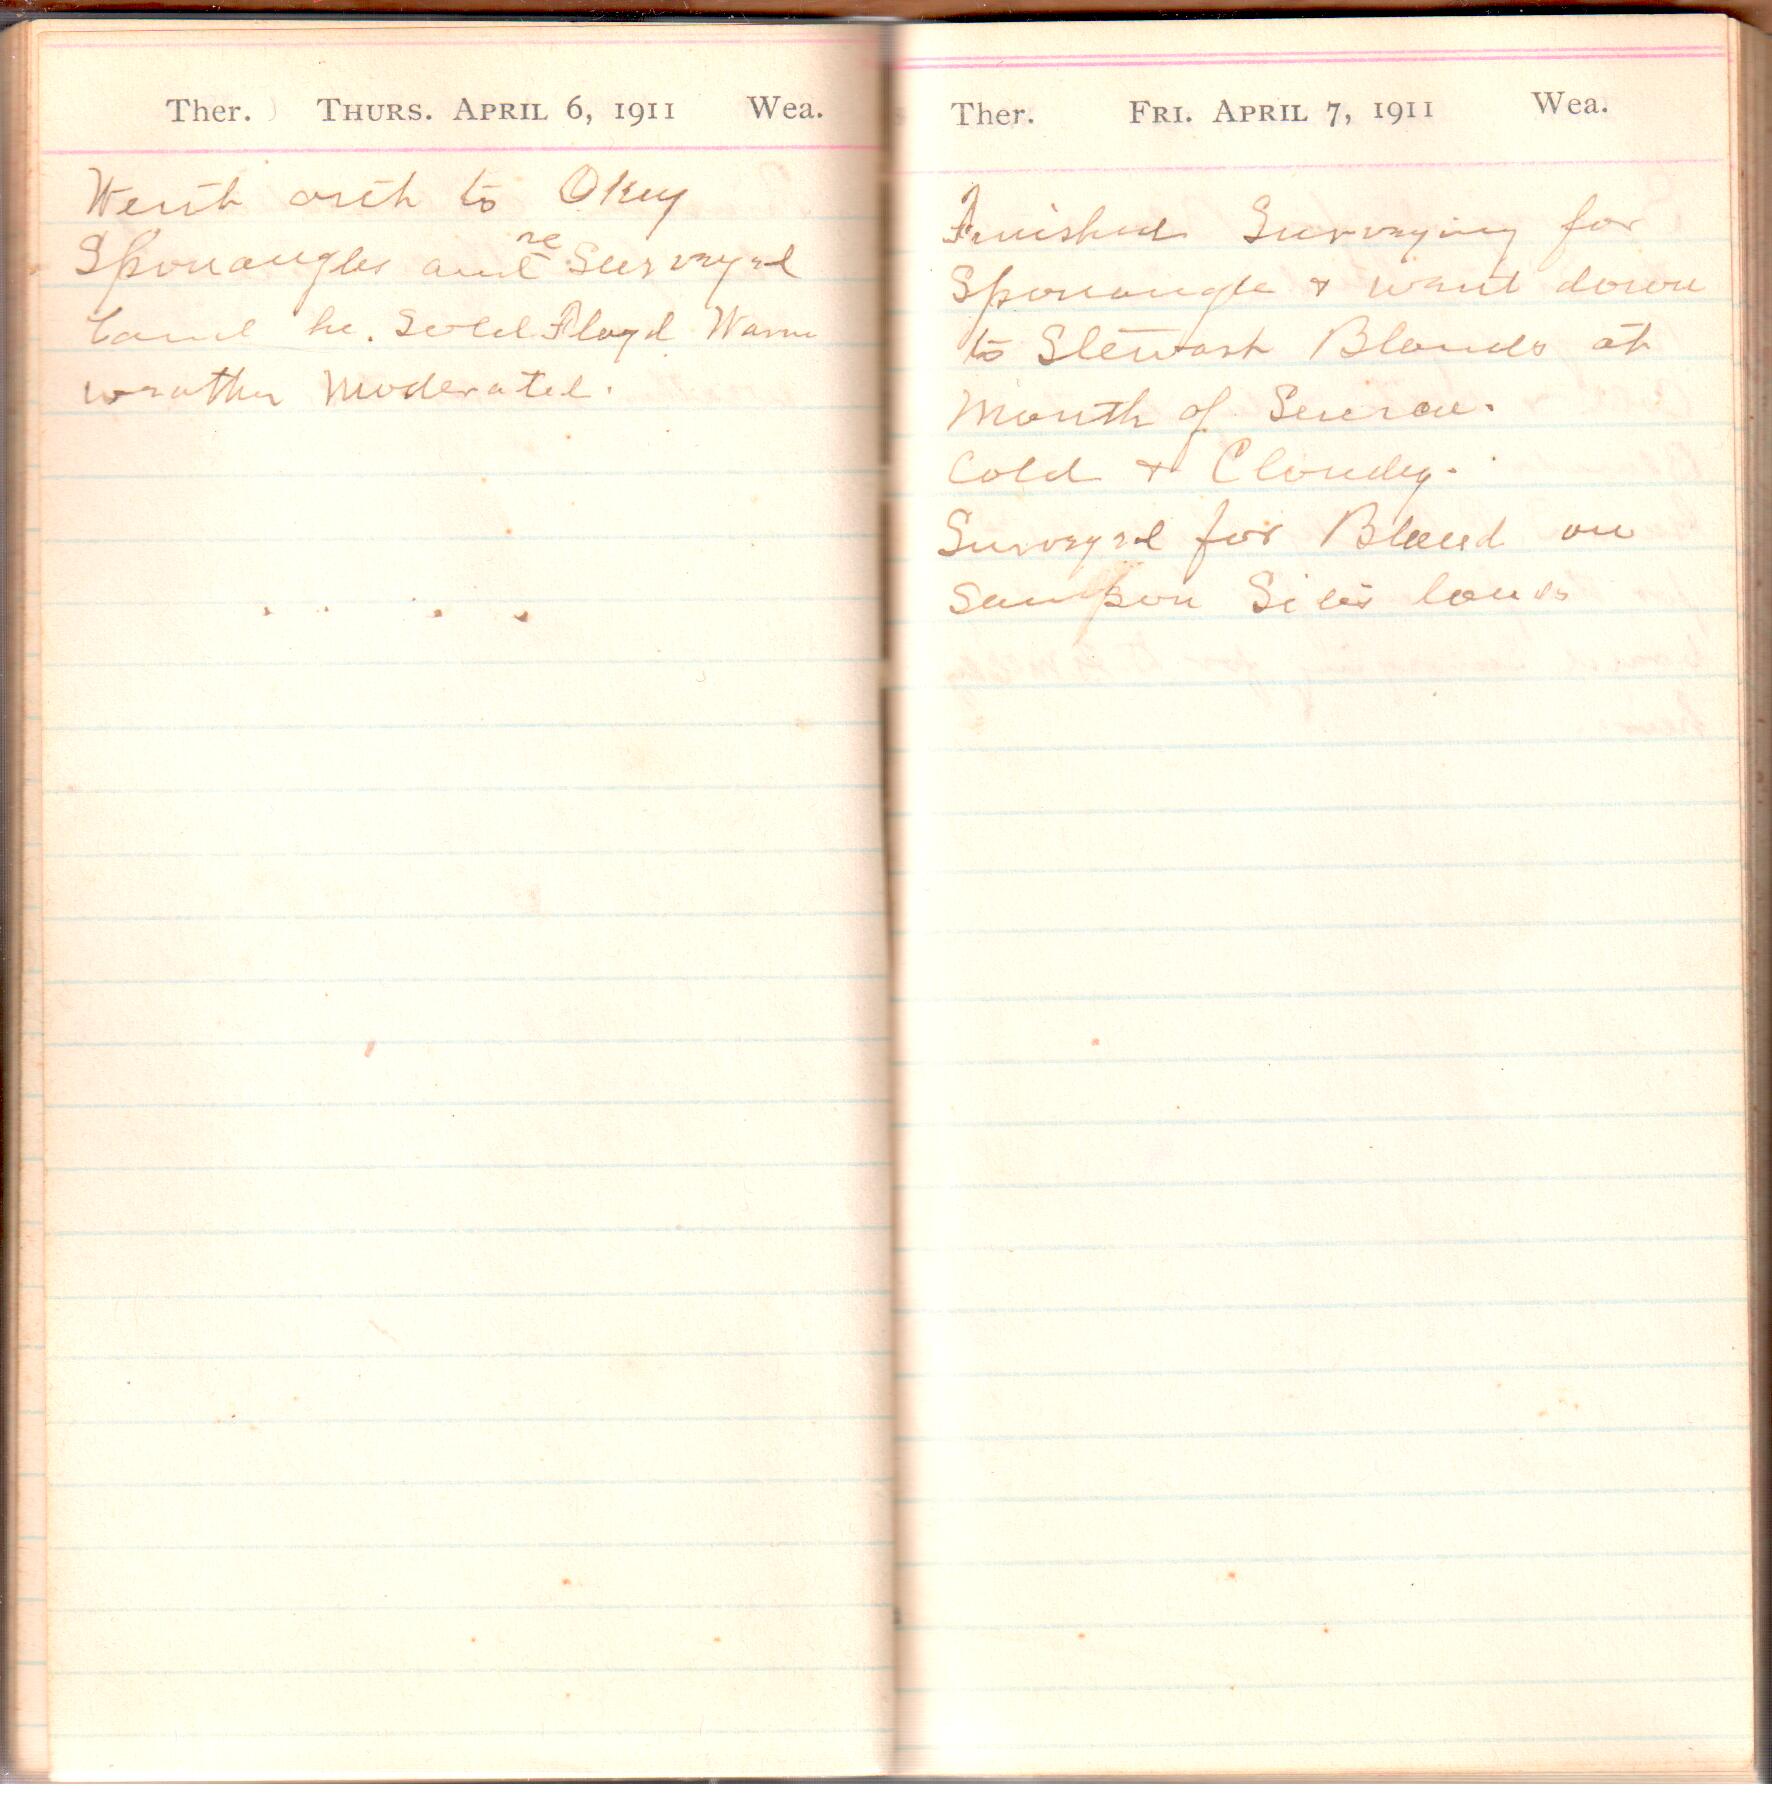 Ther. Thurs. April 6, 1911 Wea.
Went out to Okey
Sponaugles and re Surveyed
land he. Sold Floyd Wamo
weather moderated.
Ther. Fri. April 7, 1911 Wea.
Finished Surveying for
Sponaugle & went down
to Stewart Blands at
Mouth of Seneca.
Cold & Cloudy.
Surveyed for Bland on
Sampson Sites lands